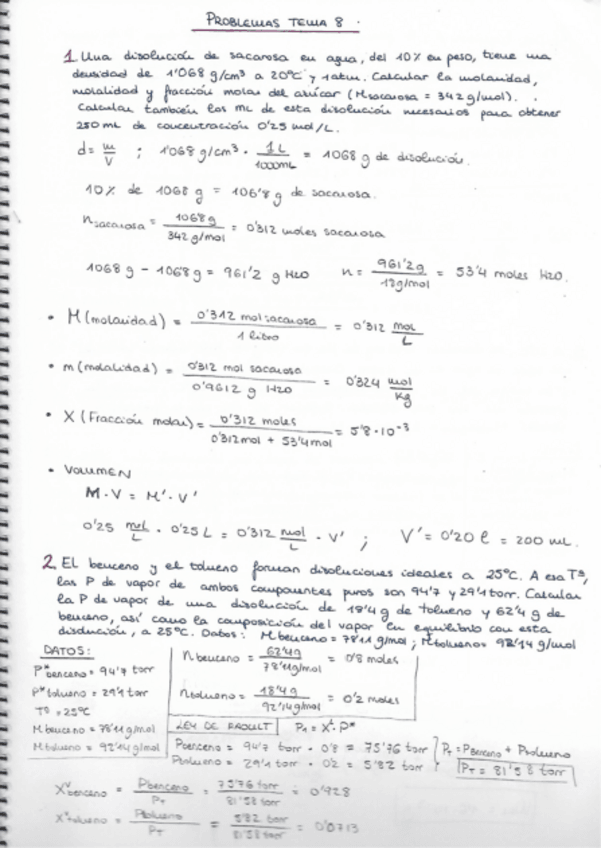 PROBLEMAS TEMA 8.
1. Una disolución de sacarosa en agua, del 10% en peso, tiene una
densidad de 1'068 g/cm³ a 20ºC y 1 atm. Calcular la molaridad,
molalidad y fracción molar del azúcar (Msacarosa = 342 g/mol).
Calcular también los mL de esta disolución necesarios para obtener
250 mL de concentración 0'25 mol/L.
d = m/V ; 1'068 g/cm³ · 1L/1000mL = 1068 g de disolución.
10% de 1068 g = 106'8 g de sacarosa.
nsacarosa = 1068 g/342 g/mol = 0'312 moles sacarosa
1068 g - 1068 g = 961'2 g H2O n = 961'2g/18g/mol = 53'4 moles H2O.
• M (molaridad) = 0'312 mol sacarosa/1 litro = 0'312 mol/L
• m (molalidad) = 0'312 mol sacarosa/0'9612 g H2O = 0'324 mol/Kg
• X (Fracción molar) = 0'312 moles/0'312mol + 53'4mol = 5'8·10⁻³
• VOLUMEN
M·V = M'·V'
0'25 mol/L · 0'25 L = 0'312 mol/L · V' ; V' = 0'20 l = 200 mL.
2. El benceno y el tolueno forman disoluciones ideales a 25ºC. A esa Tª,
las P de vapor de ambos componentes puros son 94'7 y 29'1 torr. Calcular
la P de vapor de una disolución de 18'4 g de tolueno y 62'4 g de
benceno, así como la composición del vapor en equilibrio con esta
disolución, a 25ºC. Datos: Mbenceno = 78'11 g/mol; Mtolueno = 92'14 g/mol
DATOS:
P*benceno = 94'7 torr
P*tolueno = 29'1 torr
Tª = 25ºC
Mbenceno = 78'11 g/mol
Mtolueno = 92'14 g/mol
nbenceno = 62'4g/78'11g/mol = 0'8 moles
ntolueno = 18'4 g/92'14g/mol = 0'2 moles
LEY DE RAOULT P₁ = Xᴸ·P*
Pbenceno = 94'7 torr · 0'8 = 75'76 torr
Ptolueno = 29'1 torr · 0'2 = 5'82 torr
PT = Pbenceno + Ptolueno
PT = 81'58 torr
Xᵛbenceno = Pbenceno/PT = 75'76 torr/81'58 torr = 0'928
Xᵛtolueno = Ptolueno/PT = 5'82 torr/81'58 torr = 0'0713